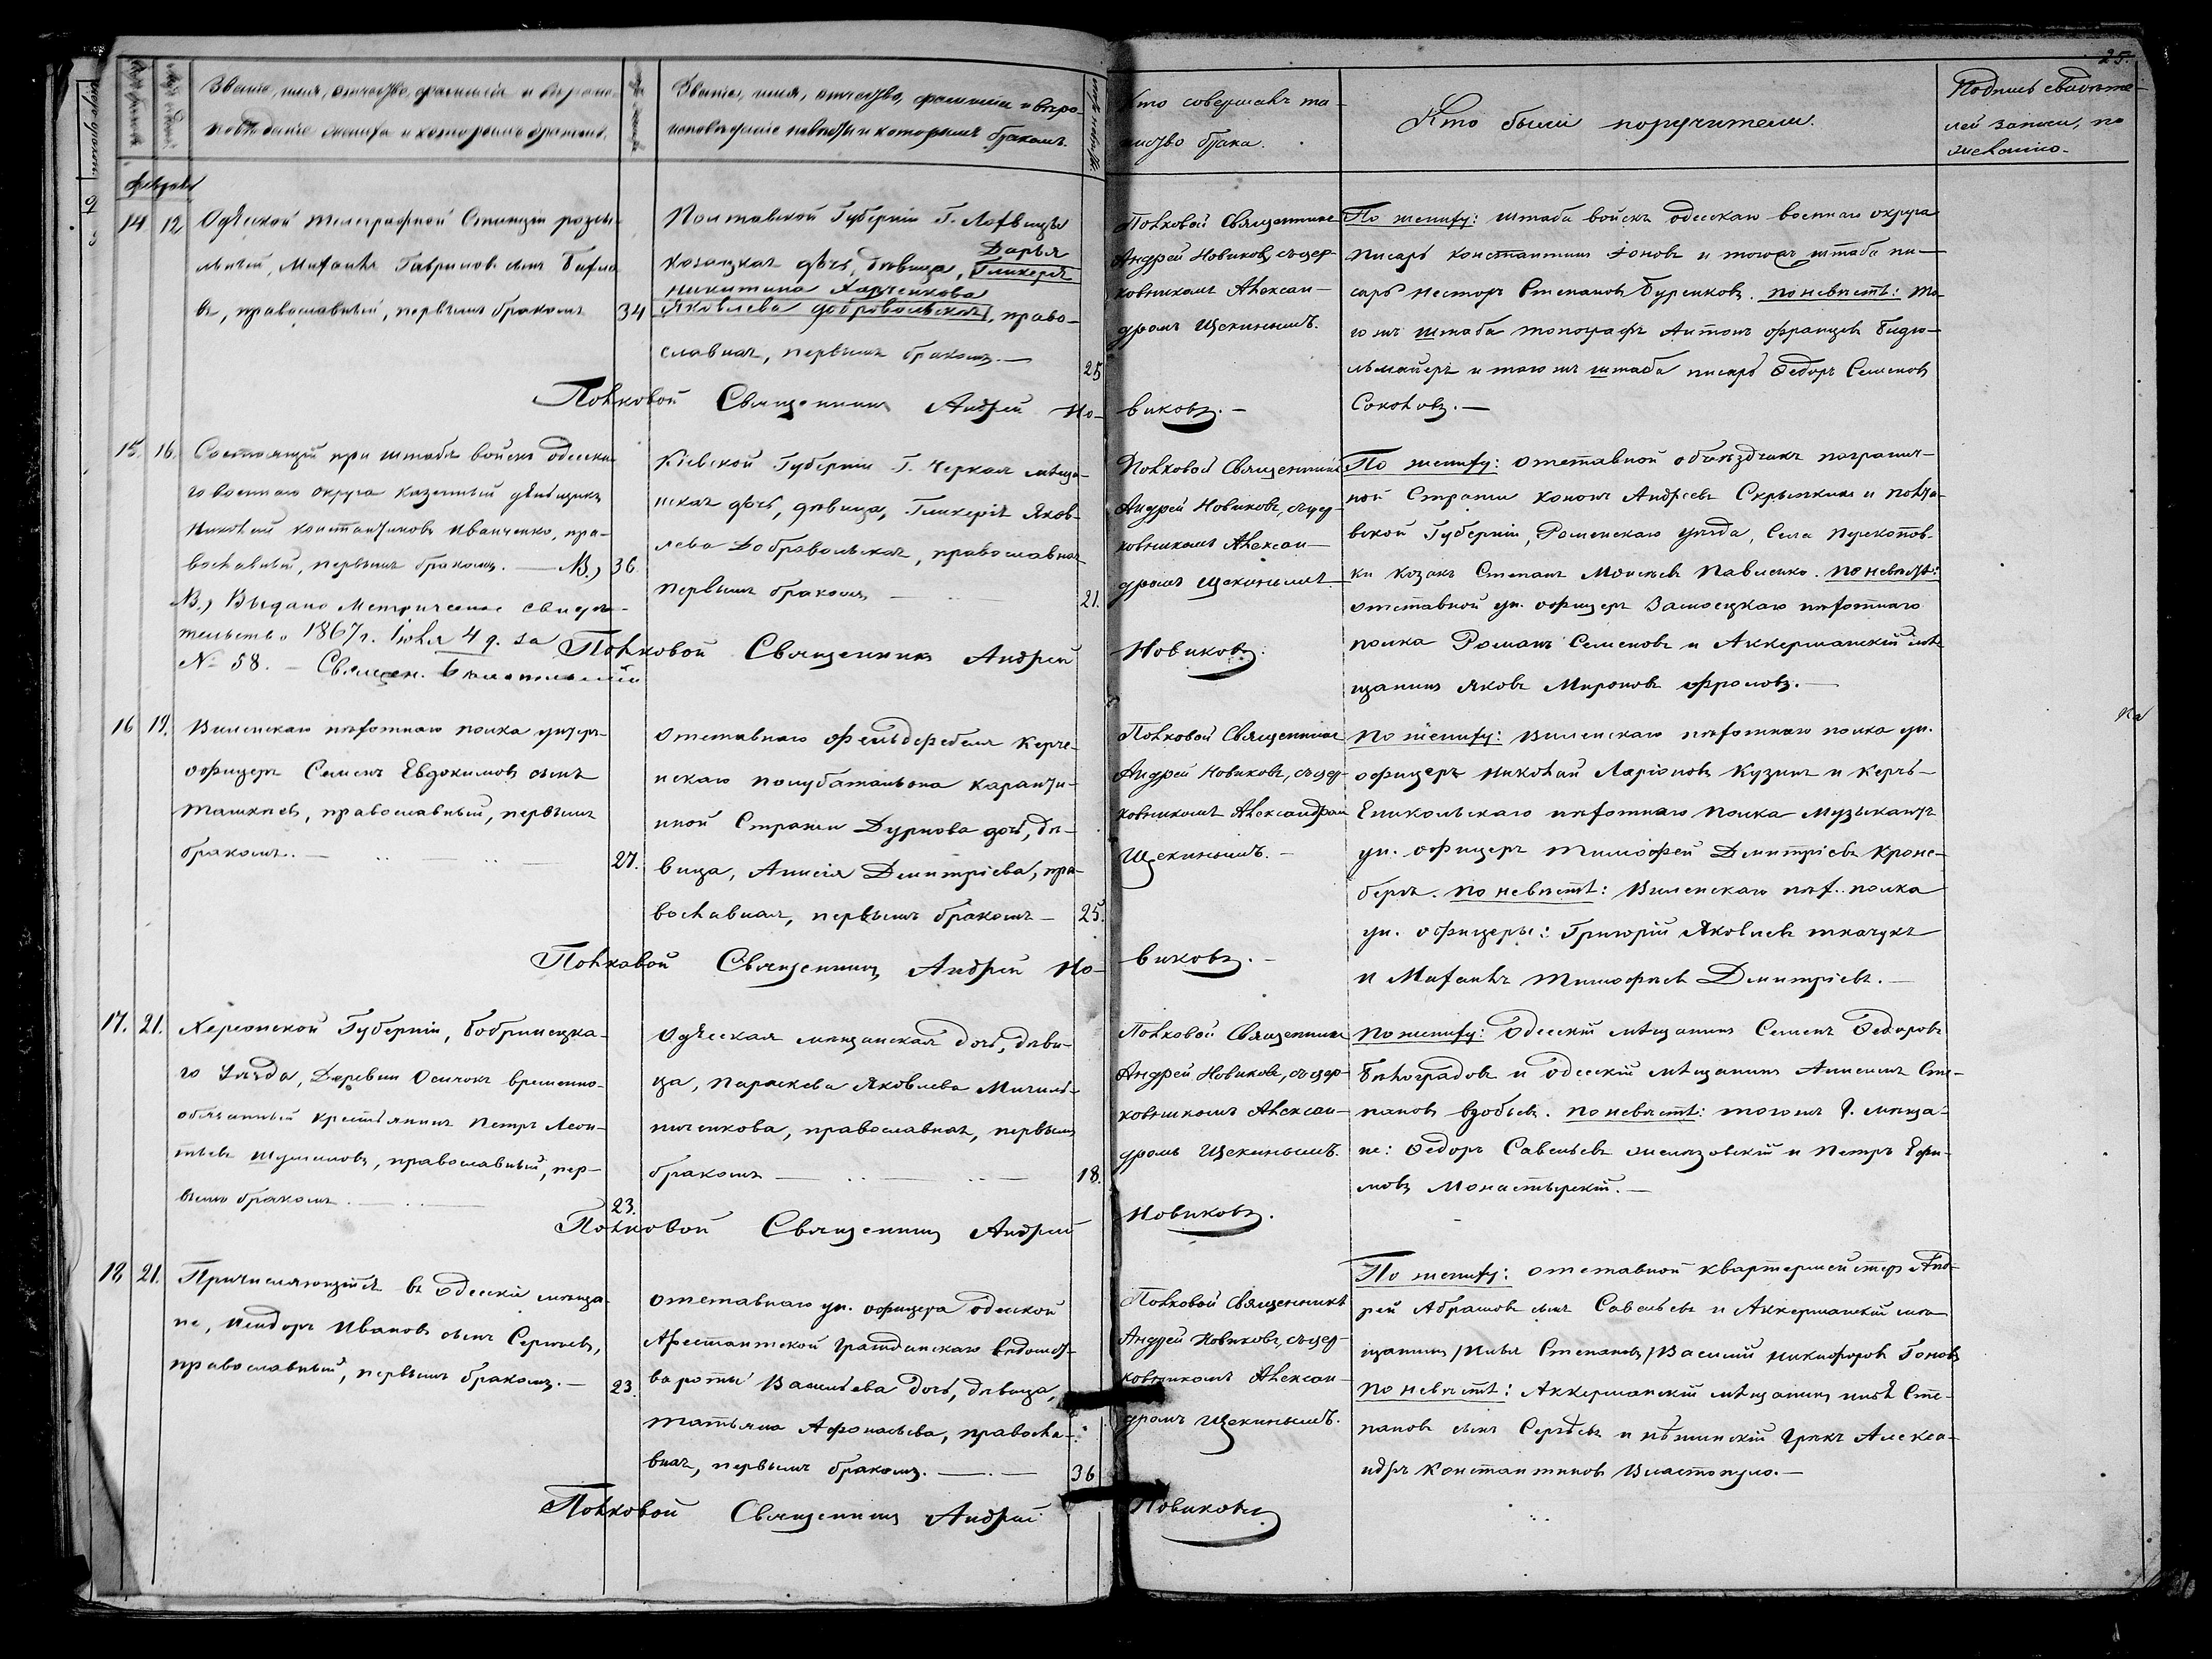 25.
Званіе, имя, отчество, фамилія и вѣроис-
повѣданіе жениха и которымъ бракомъ.
Званіе, имя, отчество, фамилія и вѣро-
исповѣданіе невѣсты и которымъ бракомъ.
Кто совершалъ та-
инство брака.
Кто были поручители.
Подпись свидѣте-
лей записи, по
желанію.
Февраль
14 12
Одесской телеграфной Станціи разсы-
льный, Михаилъ Гавриловъ сынъ
въ, православный, первымъ бракомъ 34
Полтавской Губерніи Г. Лохвицы
козацкая дочь, дѣвица, Гликерія
Дарья
Никитина Харченкова
Яковлева Добровольская, право-
славная, первымъ бракомъ.— 25
Полковой Священникъ
Андрей Новиковъ, съ цер-
ковникомъ Алексан-
дромъ Щекинымъ.
По жениху: штаба войскъ одесскаго военнаго округа
писарь Константинъ Іоновъ и тогожъ штаба пи-
сарь Несторъ Степановъ Буренковъ. по невѣстѣ: то-
гожъ штаба топографъ Антонъ Францевъ
и тогожъ штаба писарь Ѳедоръ Семеновъ
Соколовъ.—
Полковой Священникъ Андрей Но-виковъ.—
15. 16.
Состоящій при штабѣ войскъ одесска-
го военнаго округа казенный деньщикъ
Николай Константиновъ Иванченко, пра-
вославный, первымъ бракомъ.— NB., 36
NB., Выдано Метрическое свидѣ-
тельство 1867 г. Іюля 4 д. за
№ 58. — Священ.
Кіевской Губерніи Г. Черкасъ мѣща-
нская дочь, дѣвица, Гликерія Яков-
лева Добровольская, православная
первымъ бракомъ 21.
Полковой Священникъ
Андрей Новиковъ, съ цер-
ковникомъ Алексан-
дромъ Щекинымъ
По жениху: отставной объѣздчикъ погранич-
ной Стражи Кононъ Андреевъ Скрыпкинъ и Полта-
вской Губерніи, Роменскаго уѣзда, Села Перекопов-
ки козакъ Степанъ Моисѣевъ Павленко. по невѣстѣ:
отставной ун. офицеръ Замосцкаго пѣхотнаго
полка Романъ Семеновъ и Аккерманскій мѣ-
щанинъ Яковъ Мироновъ Фроловъ.—
Полковой Священникъ Андрей Новиковъ.
16 19.
Виленскаго пѣхотнаго полка унтеръ-
офицеръ Семенъ Евдокимовъ сынъ
Ташкиевъ, православный, первымъ
бракомъ.— 27.
Отставнаго Фельдфебеля Керче-
нскаго полубаталіона каранти-
нной Стражи Дурнова дочь, дѣ-
вица, Анисія Димитріева, пра-
вославная, первымъ бракомъ— 25.
Полковой Священникъ
Андрей Новиковъ, съ цер-
ковникомъ Александромъ
Щекинымъ.—
По жениху: Виленскаго пѣхотнаго полка ун.
офицеръ Николай Ларіоновъ Кузинъ и Керчь-
Еникольскаго пѣхотнаго полка музыкантъ
ун. офицеръ Тимофей Димитріевъ Кроне-
бергъ. по невѣстѣ: Виленскаго пѣх. полка
ун. офицеры: Григорій Яковлевъ Ткачукъ
и Михаилъ Тимофѣевъ Димитріевъ.—
Полковой Священникъ Андрей Но-виковъ.—
17. 21.
Херсонской Губерніи, Бобринецка-
го Уѣзда, Деревни Осичокъ временно-
обязанный крестьянинъ Петръ Леон-
тьевъ Шумиловъ, православный, пер-
вымъ бракомъ.— 23.
Одесская мѣщанская дочь, дѣви-
ца, Параскева Яковлева Мичиль-
ниченкова, православная, первымъ
бракомъ— 18.
Полковой Священникъ
Андрей Новиковъ, съ цер-
ковникомъ Алексан-
дромъ Щекинымъ.
По жениху: Одесскій мѣщанинъ Семенъ Ѳедоровъ
Бѣлоградовъ и Одесскій мѣщанинъ Анисимъ Сте-
пановъ Вдобьевъ. по невѣстѣ: тогожъ Г. мѣща-
не: Ѳедоръ Савельевъ Желязовскій и Петръ Ефи-
мовъ Монастырскій.—
Полковой Священникъ Андрей Новиковъ.
18 21.
Причисляющійся въ Одесскіе мѣща-
не, Исидоръ Ивановъ сынъ Сергѣевъ,
православный, первымъ бракомъ.— 23.
Отставнаго ун. офицера Одесской
Арестантской гражданскаго вѣдомст-
ва роты Васильева дочь, дѣвица,
Татьяна Афонасьева, правосла-
вная, первымъ бракомъ.— 36
Полковой Священникъ
Андрей Новиковъ, съ цер-
ковникомъ Алексан-
дромъ Щекинымъ.
По жениху: отставной квартермейстеръ Анд-
рей Абрамовъ сынъ Савельевъ и Аккерманскій мѣ-
щанинъ /Илья Степановъ/ Василій Никифоровъ Гоновъ
по невѣстѣ: Аккерманскій мѣщанинъ Илья Сте-
пановъ сынъ Сергѣевъ и нѣжинскій Грекъ Алекса-
ндръ Константиновъ Властопуло.—
Полковой Священникъ Андрей Новиковъ